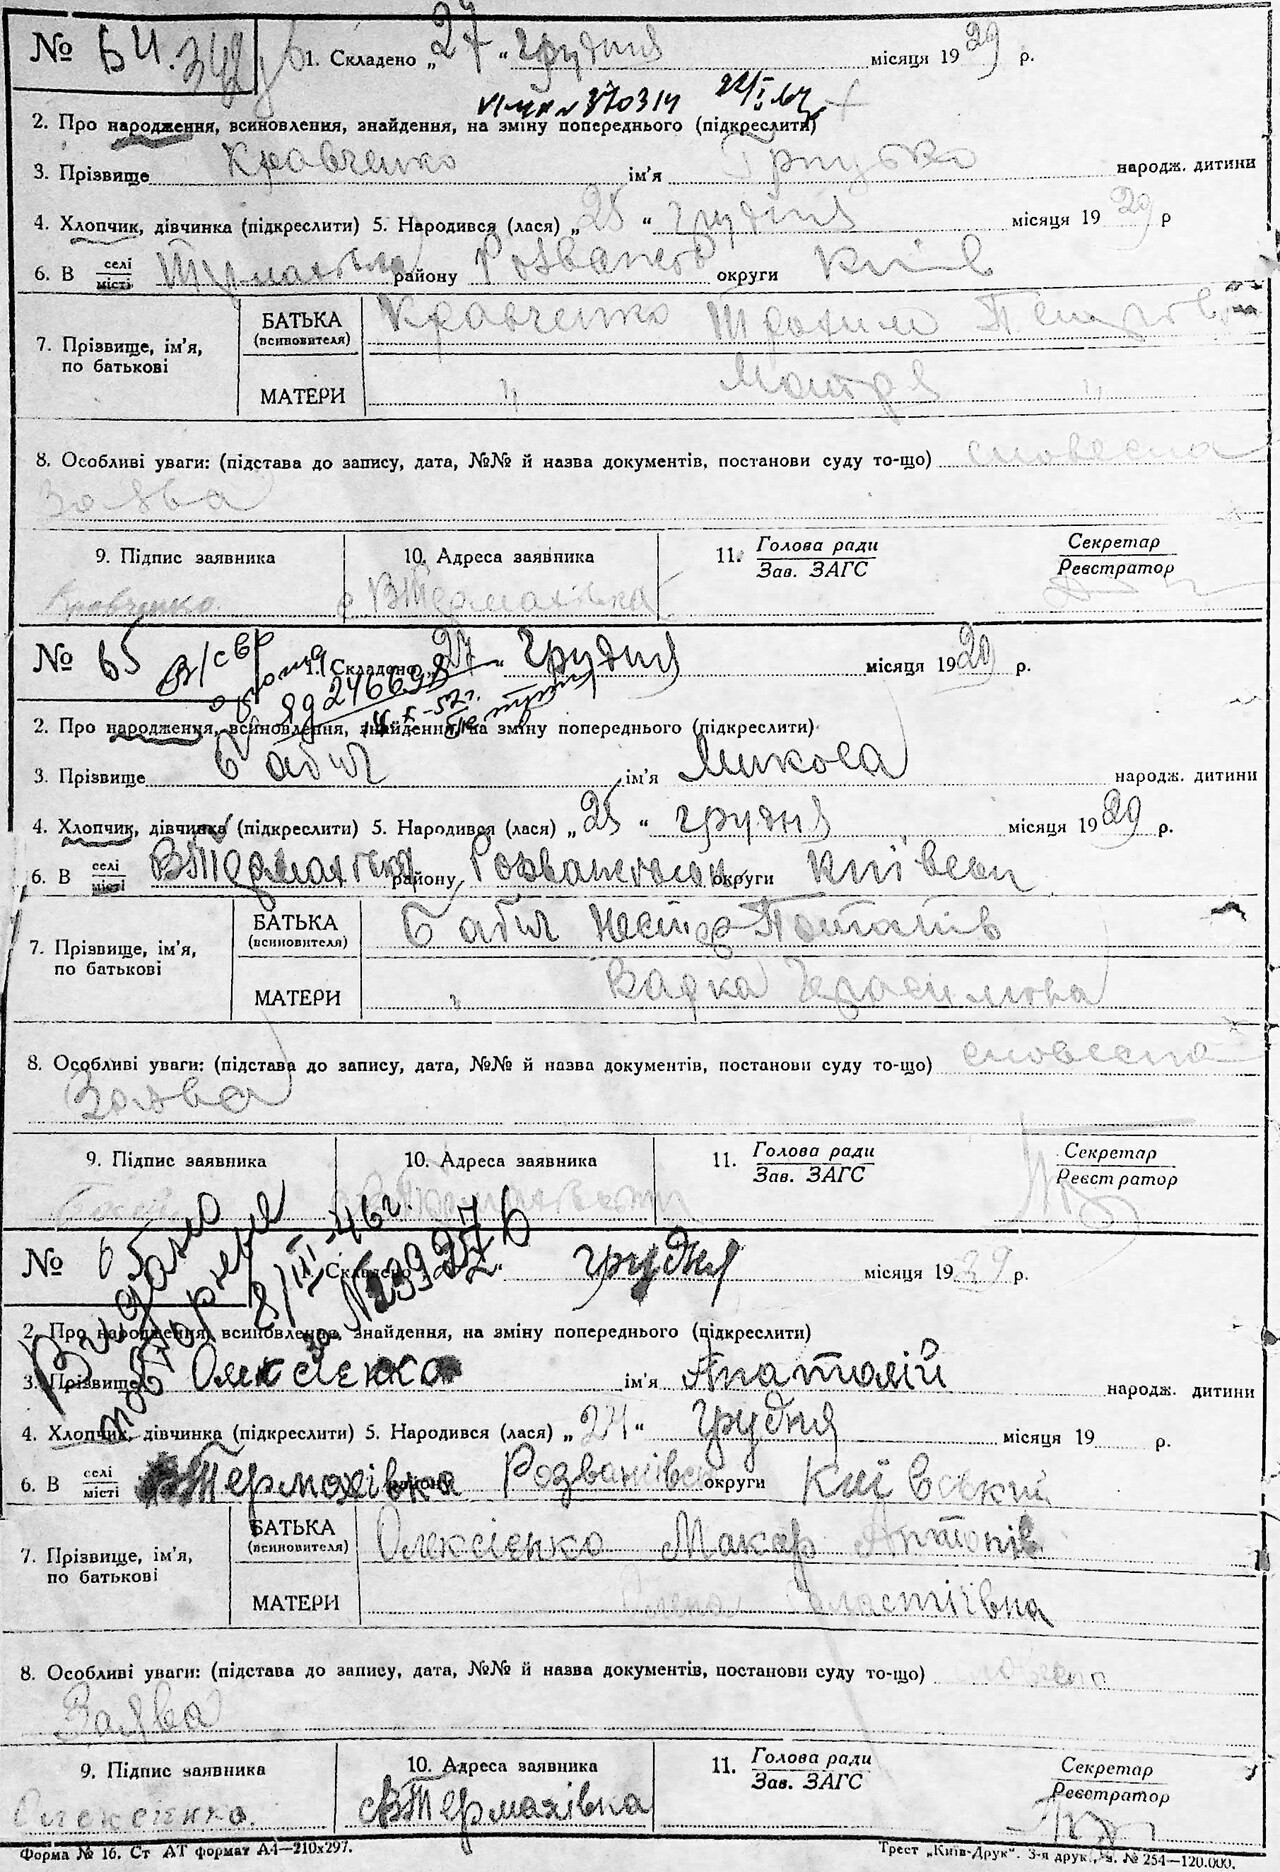 № 64. 1. Складено „27“ грудня місяця 1929 р.
2. Про народження, всиновлення, знайдення, на зміну попереднього (підкреслити)
3. Прізвище Кравченко ім'я Грицько народж. дитини
4. Хлопчик, дівчинка (підкреслити) 5. Народився (лася) „25“ грудня місяця 1929 р
6. В селі місті району округи Київ
7. Прізвище, ім'я, по батькові
БАТЬКА (всиновителя) Кравченко Трохим
МАТЕРИ „ Мотря „
8. Особливі уваги: (підстава до запису, дата, №№ й назва документів, постанови суду то-що) словесна
Заява
9. Підпис заявника 10. Адреса заявника 11. Голова ради Зав. ЗАГС Секретар Реєстратор
Кравченко В Термахівка
№ 65 1. Складено „27“ грудня місяця 1929 р.
2. Про народження, всиновлення, знайдення, на зміну попереднього (підкреслити)
3. Прізвище Бабич ім'я Микола народж. дитини
4. Хлопчик, дівчинка (підкреслити) 5. Народився (лася) „25“ грудня місяця 1929 р.
6. В селі місті В Термахівка району округи
7. Прізвище, ім'я, по батькові
БАТЬКА (всиновителя) Бабич Нестор Потапів
МАТЕРИ „ Варка Герасимовна
8. Особливі уваги: (підстава до запису, дата, №№ й назва документів, постанови суду то-що) словесна
Заява
9. Підпис заявника 10. Адреса заявника 11. Голова ради Зав. ЗАГС Секретар Реєстратор
№ 6 Складено грудня місяця 1929 р.
Видано повторне 8/III-46 г. за №
2. Про народження, всиновлення, знайдення, на зміну попереднього (підкреслити)
3. Прізвище Олексієнко ім'я Анатолій народж. дитини
4. Хлопчик, дівчинка (підкреслити) 5. Народився (лася) „24“ грудня місяця 19 р.
6. В селі місті В Термахівка району Розважівськ округи Київський
7. Прізвище, ім'я, по батькові
БАТЬКА (всиновителя) Олексієнко Макар Антонів
МАТЕРИ Олена
8. Особливі уваги: (підстава до запису, дата, №№ й назва документів, постанови суду то-що)
Заява
9. Підпис заявника 10. Адреса заявника 11. Голова ради Зав. ЗАГС Секретар Реєстратор
Олексієнко. с В Термахівка
Форма № 16. Ст АТ формат А4—210x297. Трест „Київ-Друк“. 3-я друк., з. № 254—120.000.